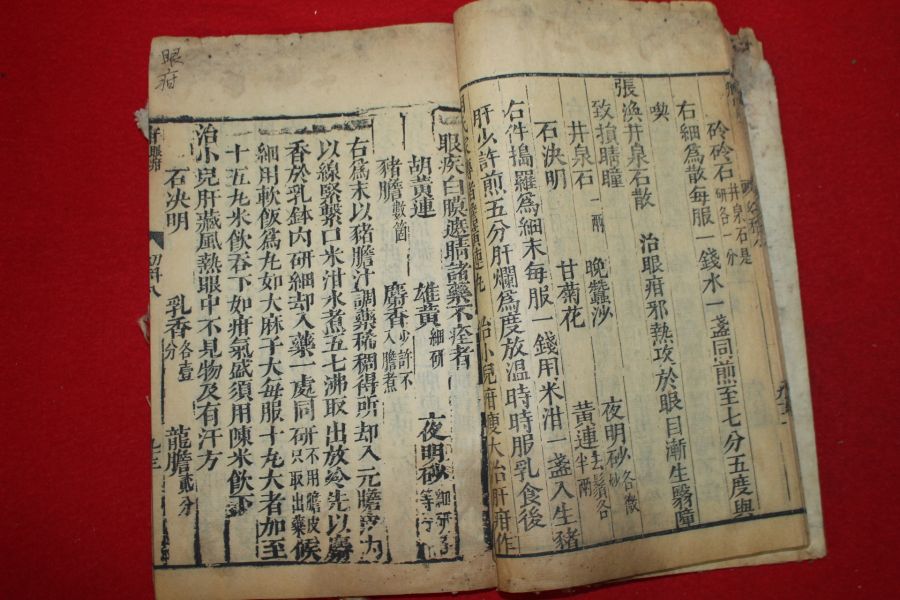 砱砱石研各一分 井泉石是
右細爲散每服一錢水一盞同煎至七分五度與
喫
張渙井泉石散 治眼疳邪熱攻於眼目漸生翳瞕
致損睛瞳
井泉石一兩 晚蠶沙 夜明砂各微
石決明 甘菊花 黃連去鬚各半兩
右件搗羅爲細末每服一錢用米泔一盞入生豬
肝少許煎五分肝爛爲度放溫時時服乳食後
治小兒疳瘦大治肝疳作
眼疾白膜遮睛諸藥不痊者
胡黃連 雄黃細研 夜明砂細研等分
豬膽數箇 麝香少許不入膽煮
右爲末以豬膽汁調藥稀稠得所却入元膽皮內
以線緊繫口米泔水煮五七沸取出放冷先以麝
香於乳鉢內研細却入藥一處同研不用膽皮只取出藥候
細用軟飯爲丸如大麻子大每服十丸大者加至
十五丸米飲吞下如疳氣盛須用陳米飲下
治小兒肝藏風熱眼中不見物及有汗方
石決明 乳香各壹分 龍膽貳分
眼疳
幼科八